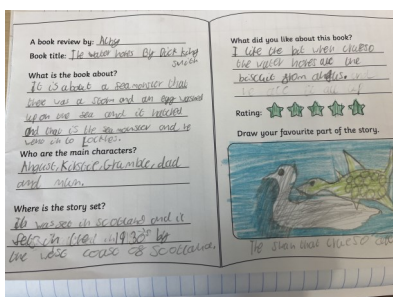 A book review by:
Book title: The water horse By Dick king
smith
What is the book about?
It is about a sea monster that
there was a storm and an egg
up on the sea and it hatched
and that is the sea monster and he
went on to Loches.
Who are the main characters?
Angust, Kirstie, Grumble, dad
and mum.
Where is the story set?
it was set in scotland and it
sets in the in 1930 by
the west coast of scotland.
What did you like about this book?
I like the bit when crueso
the water horse ate the
biscuit from
Rating:
Draw your favourite part of the story.
The that crueso